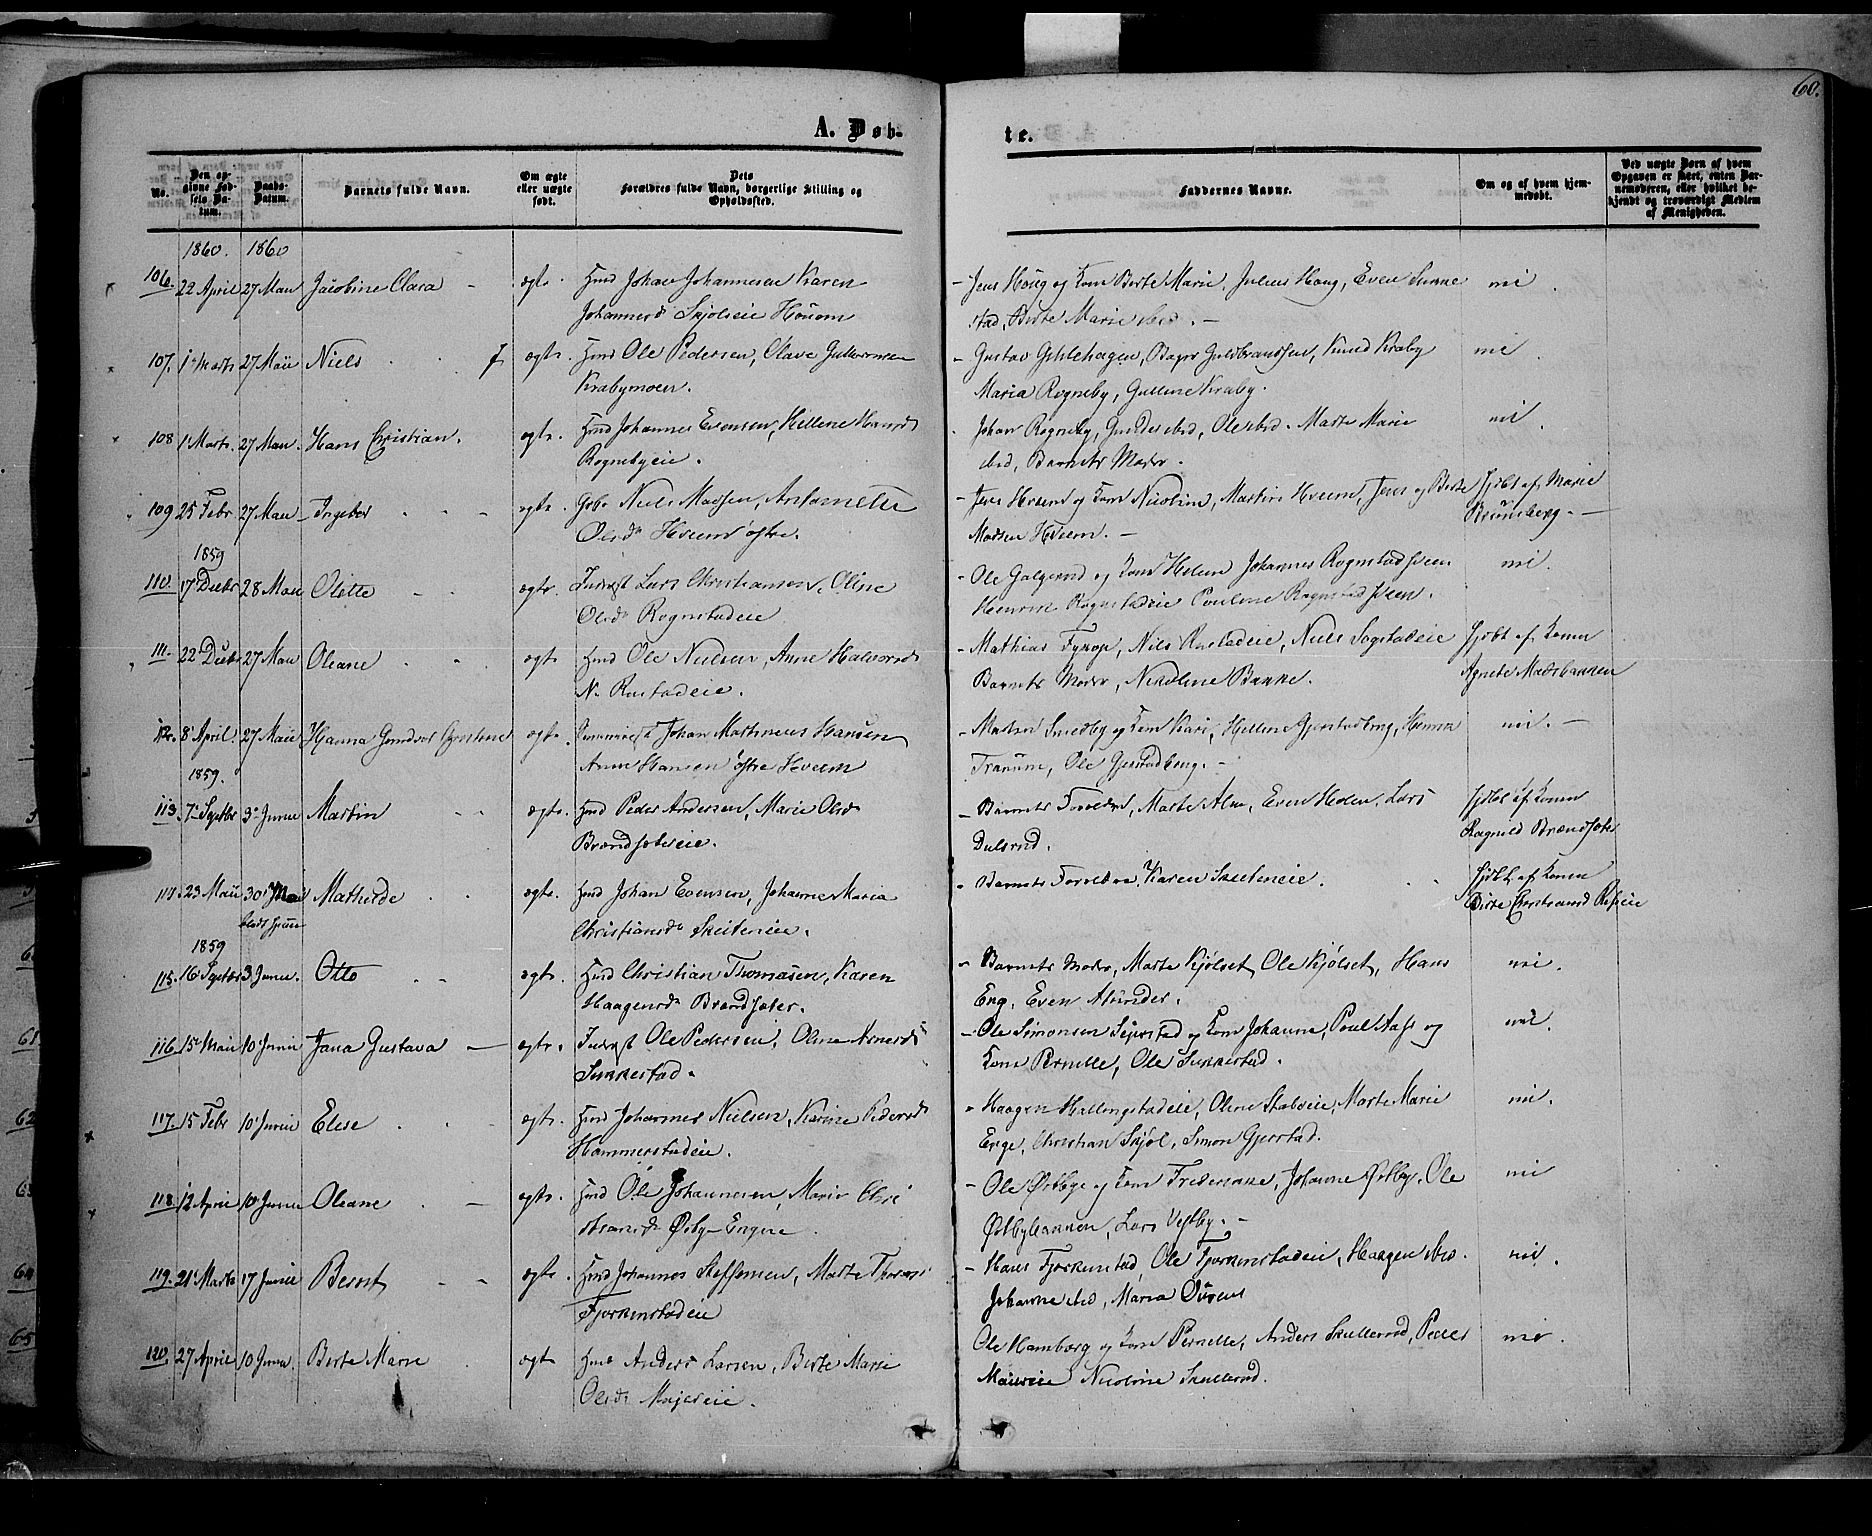 60.
A. Døb-
te.
No.
Den opgivne Fødsels Datum.
Daabs-Datum.
Barnets fulde Navn.
Om ægte eller uægte født.
Dets Forældres fulde Navn, borgerlige Stilling og Opholdssted.
Faddernes Navne.
Om og af hvem hjemmedøbt.
Ved uægte Børn af hvem Opgaven er skeet, enten Barnemoderen, eller hvilket bekjendt og troværdigt Medlem af Menigheden.
1860. 1860
106. 22 April 27 Mau Jacobine Clara - ægte. Husd Johan Johannesen Karen
Johannesd Skjølseie Houom
- Jens Houg og Kone Berte Marie, Julius Houg, Even Sukkestad, Berte Marie ibid. - nei.
107. 1 Marts 27 Mai Niels ægte. Husd Ole Pedersen, Olave Gulbrandsen
Krabymoen.
- Gustav Gihlehagen, Bager Guldbrandsen, Knud Kraby
Maria Rogneby, Gulline Kraby. nei
108 1 Marts. 27 Mau. Hans Christian. ægte. Husd Johannes Evensen, Hellene Hansd
Rognebyeie.
Johan Rogneby, Gunder ibid, Ole ibid. Marte Marie
ibid, Barnets Moder. nei.
109 25 Febr 27 Mau Ingebor ægte. Gbr. Niels Madsen, Antonette
Olsd Hveem østre.
- Jens Hveem og Kone Nicoline, Martin Hveem, Jens og Berte
Madsen Hveem. - Hjdbt af Marie
Brünsberg. -
1859
110. 17 Decbr 28 Mau Olette ægte. Inderst Lars Christiansen, Oline
Olsd Rognstadeie
- Ole Galgerud og Kone Helene Johannes Rognstadsveen
Rognstadeie Pauline Rognstadsveen. nei.
111. 22 Decbr 27 Mau Oleane ægte. Husd Ole Nielsen, Anne Halvorsd
N. Rustadeie.
- Mathias Fyrop, Nils Rustadeie, Niels Sogstadeie
Barnets Moder, Nikoline Bakke. Hjdbt af Konen
Agnete Madsbakken
112. 8 April. 27 Maii Hanna ægte. Johan Martineus Hansen
Anne Hansen østre Hveem
- Smedby og Kone Kari, Hellene Gjerstadberg, Hanna
Tranum, Ole Gjerstadberg. - nei. -
1859.
113. 7 Septbr 3 Junii Martin ægte. Husd Peder Andersen, Marie Olsd
Brandsætereie.
- Barnets Forældre, Marte Alm, Even Holen, Lars
Dulsrud. Hjdbt af Konen
Ragnild Brandsæter
114. 23 Maii 30 Mai Mathilde ægte. Husd Johan Evensen, Johanne Maria
Christiansd Skeiteneie.
- Barnets Forældre, Karen Skeiteneie. Hjdbt. af Konen
Berte
1859
115. 16 Septbr 3 Junii. Otto ægte. Husd Christian Thomasen, Karen
Haagensd Brandsæter.
- Barnets Moder, Marte Kjølset, Ole Kjølset, Hans
Eng, Even Alunder. nei.
116. 15 Maii 10 Junii Jana Gustava - ægte. Inderst Ole Pedersen, Oline Arnesd
Sukkestad.
- Ole Simonsen Sejerstad og Kone Johanne, Poul Aass og
Kone Pernille, Ole Sukkestad. nei.
117. 15 Febr 10 Junii Elise ægte. Husd Johannes Nielsen, Karine Pedersd
Hammerstadeie.
- Haagen Hallingstadeie, Oline Stabseie, Marte Marie
Enge, Christian Skjøl, Simon Gjerstad. nei.
118. 12 April 10 Junii Oleane - ægte. Husd Ole Johannesen, Marie Chri
stiansd Østby-Engene.
- Ole Østbye og Kone Frederikke, Johanne Østby, Ole
Østbybakken, Lars Vestby. - nei
119. 21 Marts 17 Junii Bernt ægte. Husd Johannes Steffensen, Marte Thores
Fjorkenstadeie
- Hans Fjorkenstad, Ole Fjorkenstadeie, Haagen ibid.
Johanne ibid, Maria Ovren nei.
120. 27 April 10 Junii. Berte Marie ægte Husd Anders Larsen, Berte Marie
Olsd Majereie.
Ole Hamborg og Kone Pernille, Anders Skullerud, Peder
Nicoline Skullerud. nei.